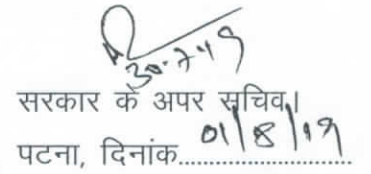 30.7.19
सरकार के अपर सचिव।
पटना, दिनांक..............................
01/8/19